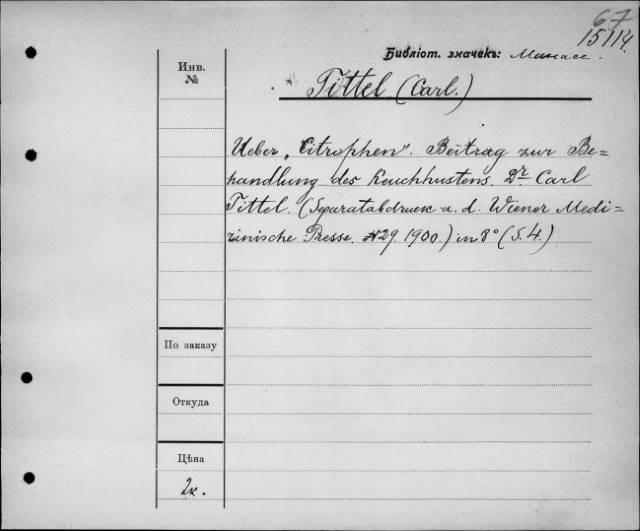 67
15114.
Библіот. значекъ: Манасс.
Инв.
№
Tittel (Carl.)
Ueber „Citrophen". Beitrag zur Be=
handlung des Keuchhustens. Dr Carl
Tittel. (Separatabdruck a. d. Wiener Medi=
zinische Presse. №29 1900.) in 8° (S. 4.)
По заказу
Откуда
Цѣна
2к.